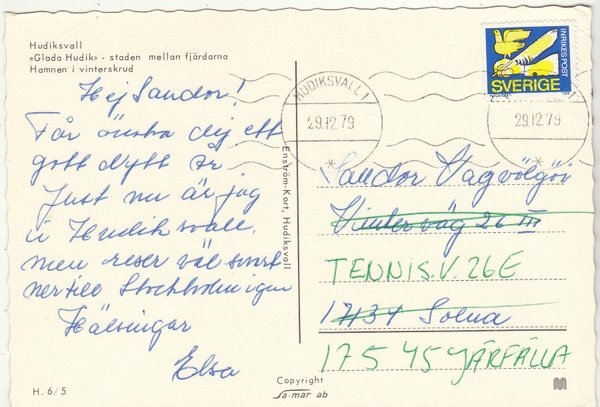 Hudiksvall
«Glada Hudik» - staden mellan fjärdarna
Hamnen i vinterskrud
Hej Sandor!
Får önska dig ett
gott nytt år
Just nu är jag
i Hudiksvall,
men reser väl snart
ner till Stockholm igen
Hälsningar
Elsa
H. 6/5
Enström-Kort, Hudiksvall
Copyright
Sa-mar ab
INRIKES POST
SVERIGE
HUDIKSVALL 1
29.12.79
29.12.79
Sandor
Vinterväg 26 III
TENNIS.V. 26E
17134 Solna
175 45 JÄRFÄLLA